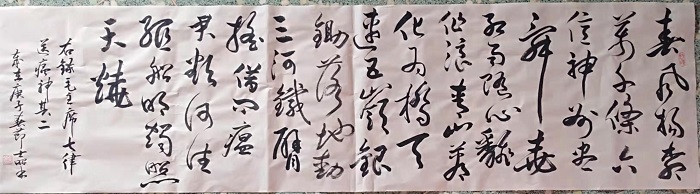 春風楊柳
萬千條六
億神州盡
舜堯
紅雨隨心翻
作浪青山着
意化为橋天
連五嶺銀
鋤落地動
三河鐵臂
搖借问瘟
君欲何往
紙船明燭照
天燒
右錄毛主席七律
送瘟神其二
庚子春節